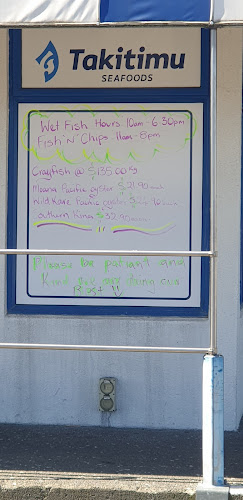 Takitimu
SEAFOODS
Wet Fish Hours 10am - 6:30pm
Fish 'N' Chips 11am - 8pm
Crayfish @ $135.00 kg
Moana Pacific oyster $21.90
Wild Kare Pacific oyster
outhern King $32
Please be patient and
Kind we are doing our
Best